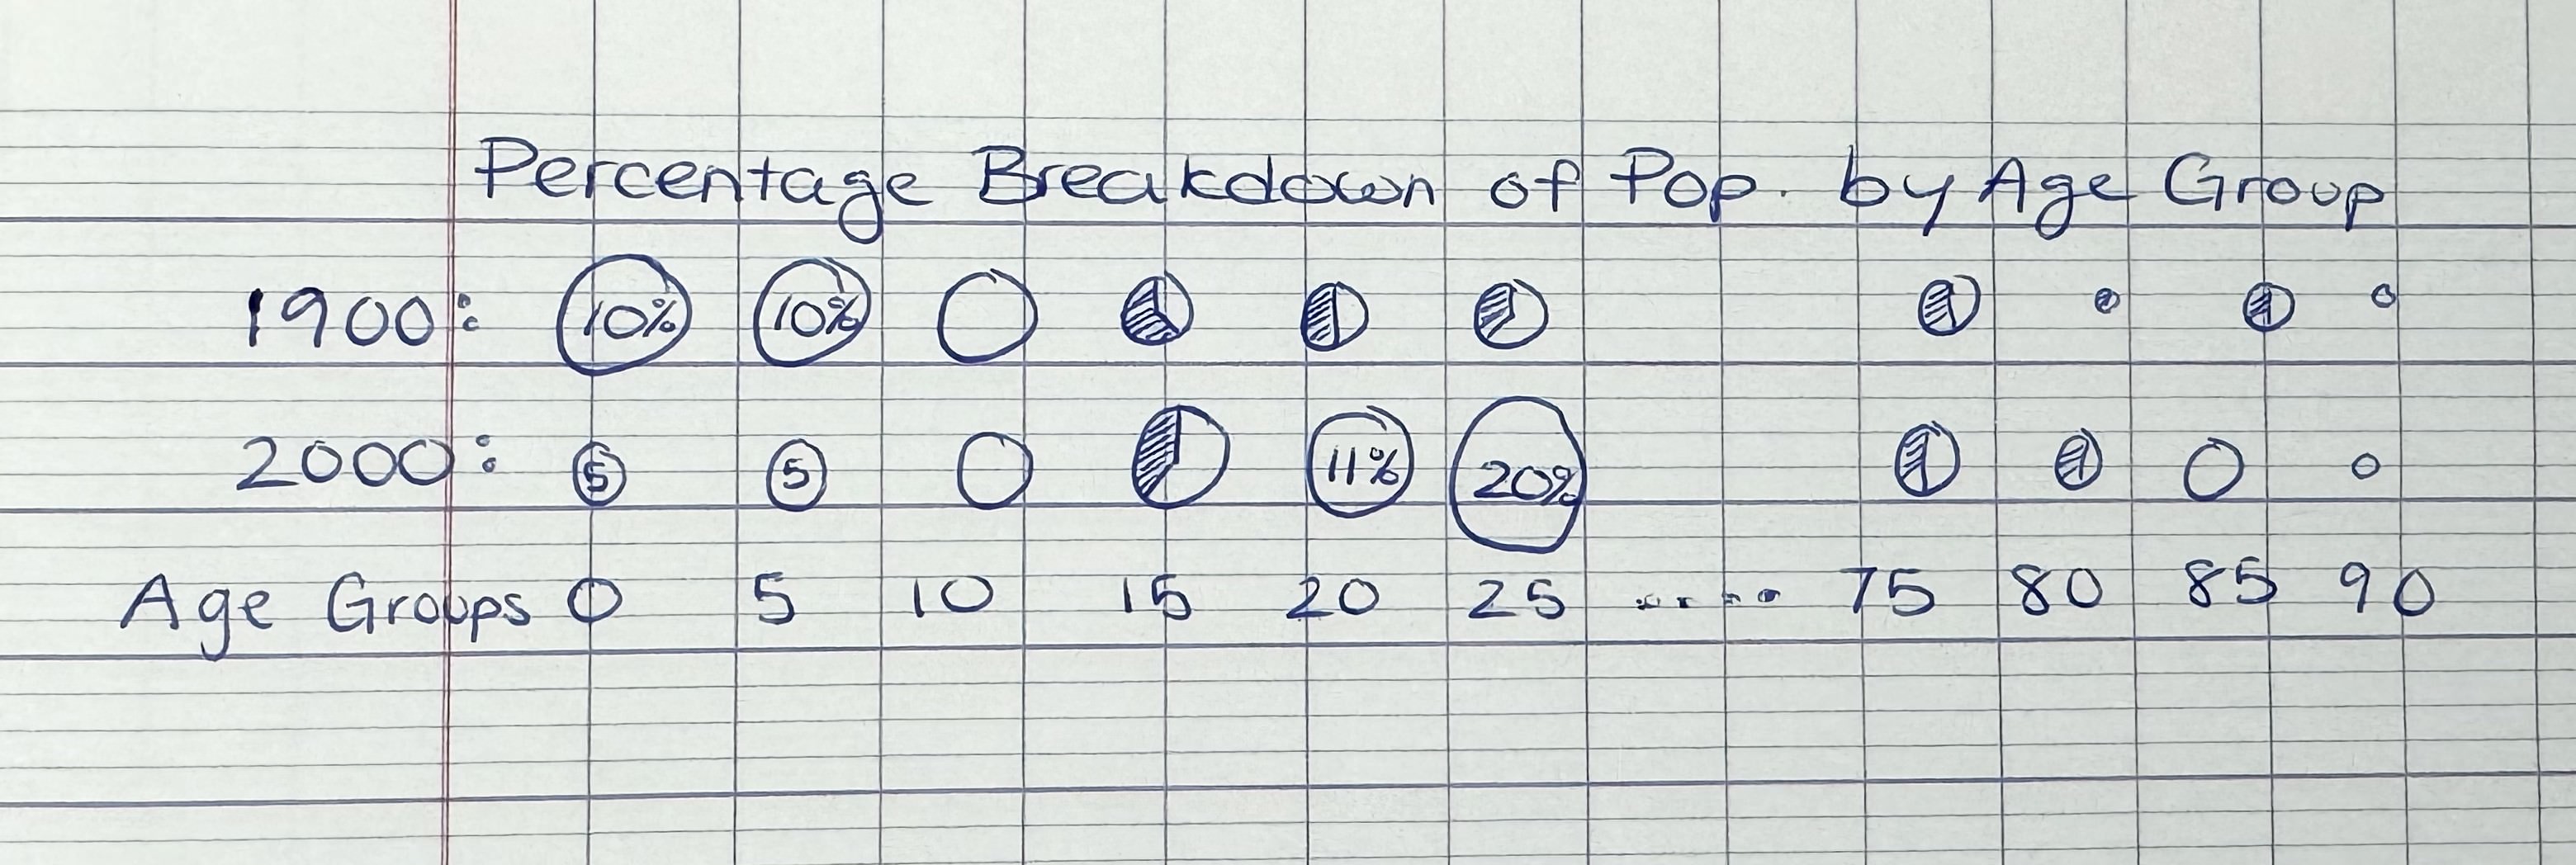 Percentage Breakdown of Pop. by Age Group
1900: 10% 10%
2000: 5 5 11% 20%
Age Groups 0 5 10 15 20 25 ..... 75 80 85 90